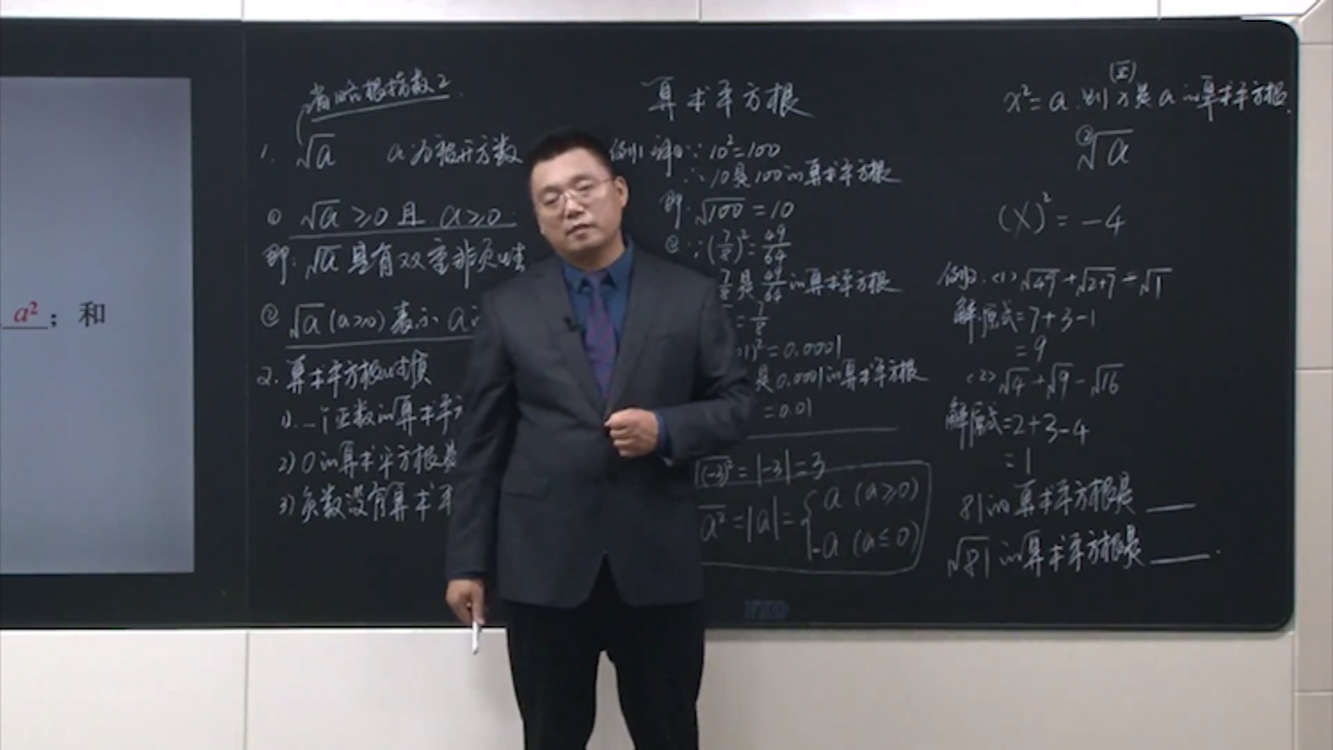 a²；和
省略根指数2
1. √a a为被开方数
① √a ≥0 且 a≥0
即：√a 具有双重非负性
② √a (a≥0) 表示 a
2. 算术平方根的性质
1). 一个正数的算术平
2) 0的算术平方根是
3) 负数没有算术平
算术平方根
例1 解① ∵ 10²=100
∴ 10是100的算术平方根
即：√100 = 10
② ∵ (7/8)² = 49/64
7/8 是 49/64 的算术平方根
= 7/8
01)² = 0.0001
是0.0001的算术平方根
= 0.01
√(-3)² = |-3| = 3
√a² = |a| = { a (a≥0)
-a (a≤0)
(正)
x² = a. 则 x是 a 的算术平方根.
②√a
(X)² = -4
例2. (1) √49 + √2+7 - √1
解：原式=7+3-1
= 9
(2) √4 + √9 - √16
解：原式=2+3-4
= 1
81的算术平方根是 ____
√81 的算术平方根是 ____.